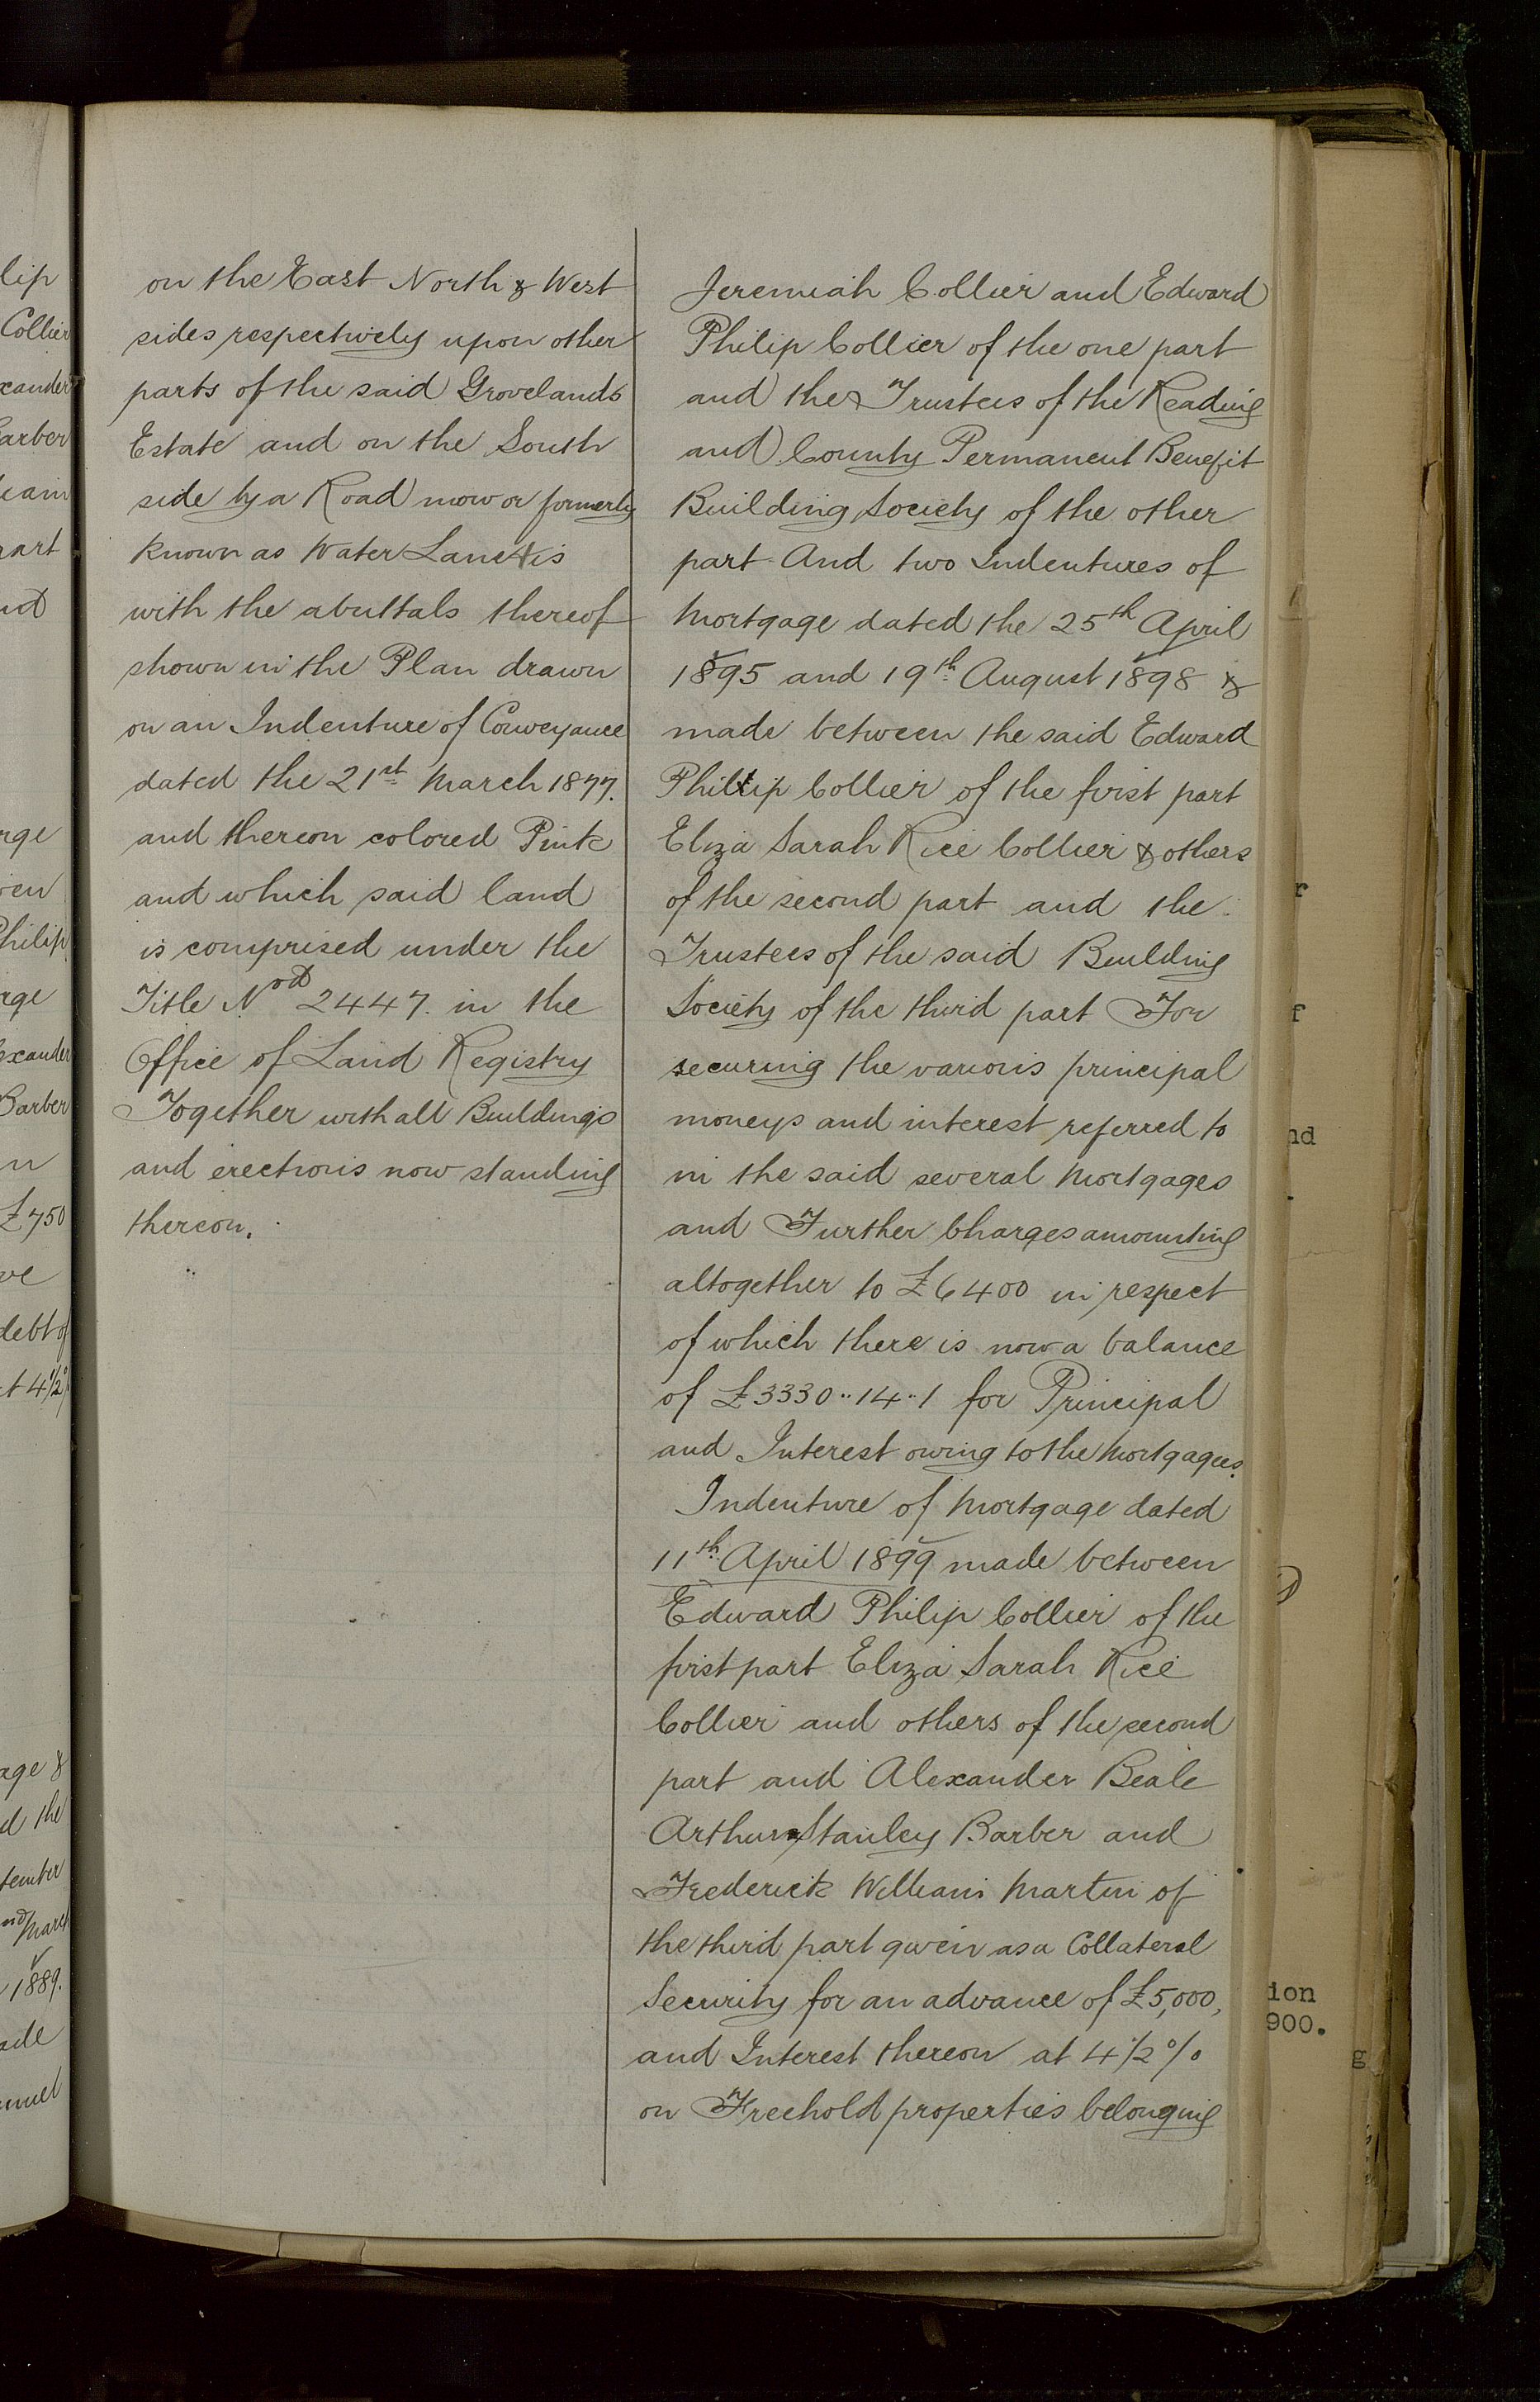 on the East North & West
sides respectively upon other
parts of the said Grovelands
Estate and on the South
side by a Road now or formerly
known as Water Lane & is
with the abuttals thereof
shown in the Plan drawn
on an Indenture of Conveyance
dated the 21st March 1877.
and thereon colored Pink
and which said land
is comprised under the
Title No. 2447. in the
Office of Land Registry
Together with all Buildings
and erections now standing
thereon.
Jeremiah Collier and Edward
Philip Collier of the one part
and the Trustees of the Reading
and County Permanent Benefit
Building Society of the other
part And two Indentures of
Mortgage dated the 25th April
1895 and 19th August 1898 &
made between the said Edward
Philip Collier of the first part
Eliza Sarah Rice Collier & others
of the second part and the
Trustees of the said Building
Society of the third part For
securing the various principal
moneys and interest referred to
in the said several Mortgages
and Further Charges amounting
altogether to £6400 in respect
of which there is now a balance
of £3330..14..1 for Principal
and Interest owing to the Mortgagees.
Indenture of Mortgage dated
11th April 1899 made between
Edward Philip Collier of the
first part Eliza Sarah Rice
Collier and others of the second
part and Alexander Beale
Arthur Stanley Barber and
Frederick William Martin of
the third part given as a Collateral
Security for an advance of £5,000,
and Interest thereon at 4 1/2 %
on Freehold properties belonging
lip
Collier
xander
arber
liam
part
nd
rge
ven
Philip
rge
exander
Barber
n
£750
ve
debt of
at 4 1/2 %
age &
d the
tember
nd March
1889.
ade
muel
r
f
nd
ion
900.
g